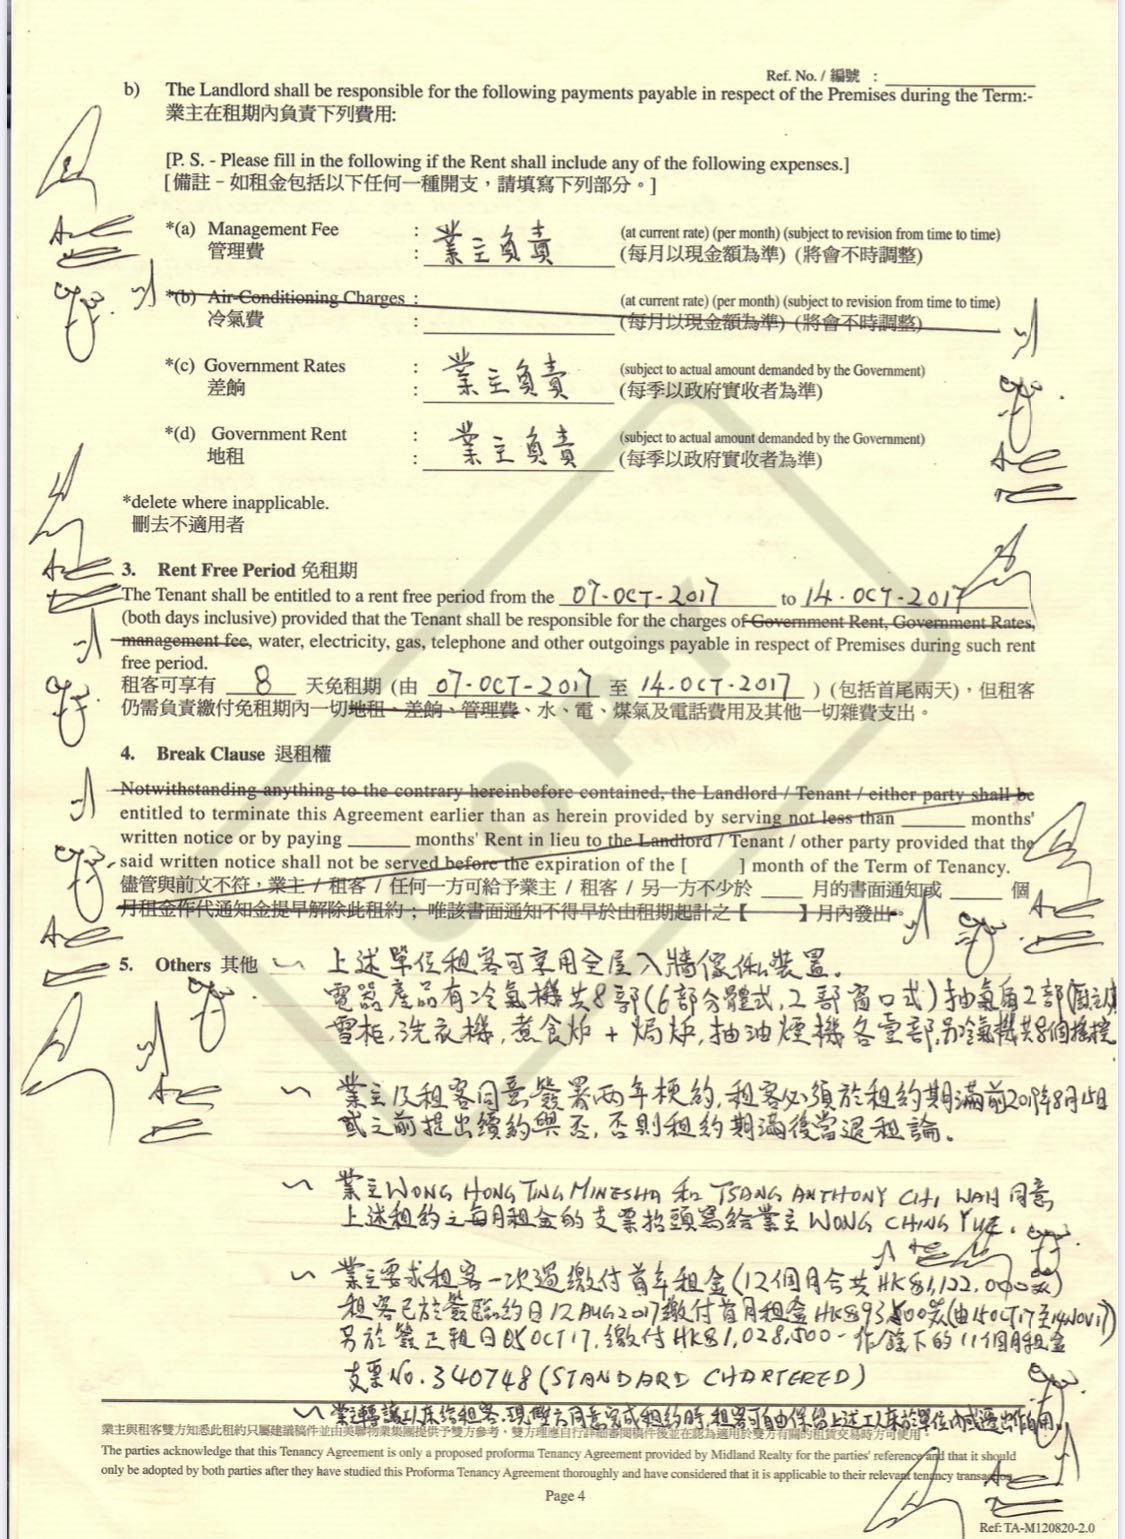 Ref. No. / 編號 :
b) The Landlord shall be responsible for the following payments payable in respect of the Premises during the Term:-
業主在租期內負責下列費用:
[P. S. - Please fill in the following if the Rent shall include any of the following expenses.]
[備註 - 如租金包括以下任何一種開支，請填寫下列部分。]
*(a) Management Fee : 業主負責 (at current rate) (per month) (subject to revision from time to time)
管理費 : (每月以現金額為準) (將會不時調整)
*(b) Air-Conditioning Charges : (at current rate) (per month) (subject to revision from time to time)
冷氣費 : (每月以現金額為準) (將會不時調整)
*(c) Government Rates : 業主負責 (subject to actual amount demanded by the Government)
差餉 : (每季以政府實收者為準)
*(d) Government Rent : 業主負責 (subject to actual amount demanded by the Government)
地租 : (每季以政府實收者為準)
*delete where inapplicable.
刪去不適用者
3. Rent Free Period 免租期
The Tenant shall be entitled to a rent free period from the 07-OCT-2017 to 14-OCT-2017
(both days inclusive) provided that the Tenant shall be responsible for the charges of Government Rent, Government Rates,
management fee, water, electricity, gas, telephone and other outgoings payable in respect of Premises during such rent
free period.
租客可享有 8 天免租期 (由 07-OCT-2017 至 14-OCT-2017 ) (包括首尾兩天)，但租客
仍需負責繳付免租期內一切地租、差餉、管理費、水、電、煤氣及電話費用及其他一切雜費支出。
4. Break Clause 退租權
Notwithstanding anything to the contrary hereinbefore contained, the Landlord / Tenant / either party shall be
entitled to terminate this Agreement earlier than as herein provided by serving not less than ______ months'
written notice or by paying ______ months' Rent in lieu to the Landlord / Tenant / other party provided that the
said written notice shall not be served before the expiration of the [ ] month of the Term of Tenancy.
儘管與前文不符，業主 / 租客 / 任何一方可給予業主 / 租客 / 另一方不少於 ____ 月的書面通知或 ____ 個
月租金作代通知金提早解除此租約；唯該書面通知不得早於由租期起計之【 】月內發出。
5. Others 其他 ~ 上述單位租客可享用全屋入牆傢俬裝置。
電器產品有冷氣機共8部(6部分體式,2部窗口式)抽氣扇2部
雪柜,洗衣機,煮食炉+焗炉,抽油煙機各壹部,另冷氣機共8個搖控
~ 業主及租客同意簽署两年梗約,租客必須於租約期滿前2019年8月15日
或之前提出續約與否,否則租約期滿後當退租論。
~ 業主WONG HONG TING MINESHA 和 TSANG ANTHONY CHI WAH 同意
上述租約之每月租金的支票抬頭寫給業主 WONG CHING YUE.
~ 業主要求租客一次過繳付首年租金(12個月合共HK$1,122,000)
租客已於簽臨約日12AUG2017繳付首月租金HK$93,500(由15OCT17至14NOV17)
另於簽正租日05OCT17,繳付HK$1,028,500-作餘下的11個月租金
支票No. 340748 (STANDARD CHARTERED)
~ 業主轉讓工人床給租客,現雙方同意完成租約時,租客可自由保留上述工人床於單位內或
業主與租客雙方知悉此租約只屬建議稿件並由美聯物業集團提供予雙方參考，雙方理應自行詳細審閱稿件後並在認為適用於雙方有關的租賃交易時方可使用
The parties acknowledge that this Tenancy Agreement is only a proposed proforma Tenancy Agreement provided by Midland Realty for the parties' reference and that it should
only be adopted by both parties after they have studied this Proforma Tenancy Agreement thoroughly and have considered that it is applicable to their relevant tenancy transaction
Page 4
Ref: TA-M120820-2.0
COPY